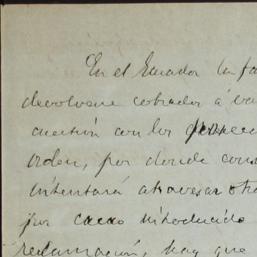 En el Ecuador la fa
devolverse cobrados á
cuestión con los
orden, por donde cons
intentará atravesar otro
por cacao introducido
reclamación, hay que